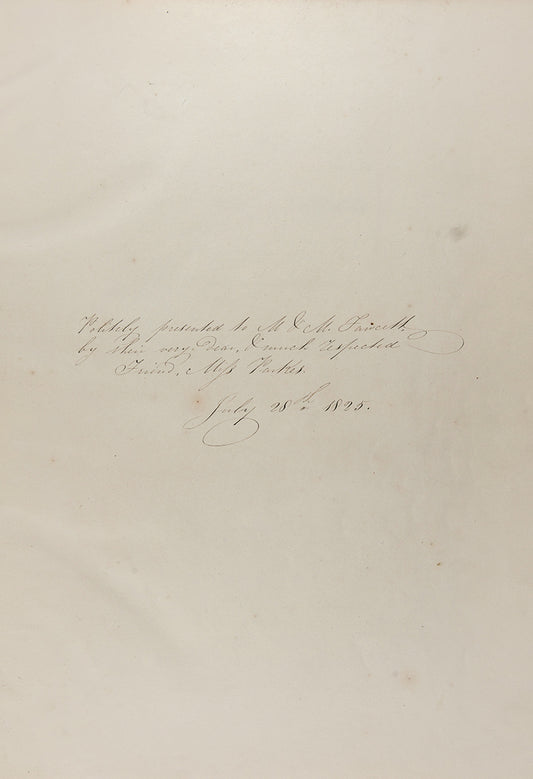 Politely presented to M & M. Fawcett
by their very Dear, & much respected
Friend, Miss Parker.
July 28th 1825.